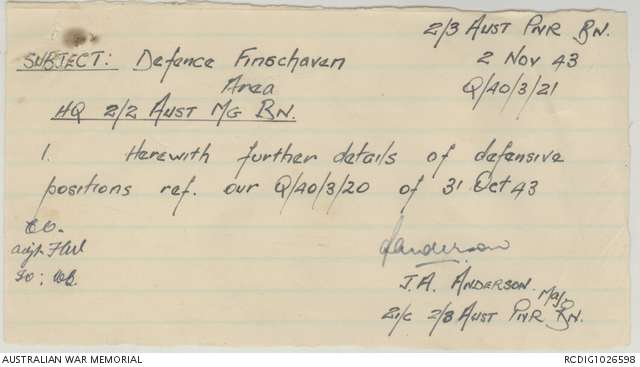 2/3 AUST PNR BN.
2 NOV 43
Q/40/3/21
SUBJECT: Defence Finschaven
Area
HQ 2/2 AUST MG BN.
1. Herewith further details of defensive
positions ref. our Q/40/3/20 of 31 Oct 43
CO.
Adjt
IO:
JAnderson
J.A. ANDERSON. Major
2i/c 2/3 AUST PNR BN.
AUSTRALIAN WAR MEMORIAL
RCDIG1026598